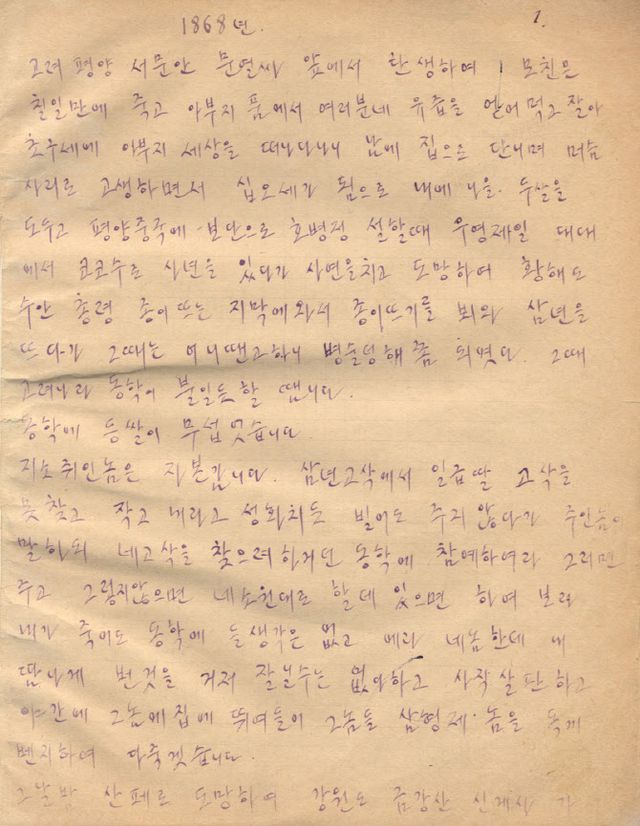 1868년.
1.
고려 평양 서문안 문열사 앞에서 탄생하여 모친은
칠일만에 죽고 아부지 품에서 여러분네 유즙을 얻어먹고 잘아
초우세에 아부지 세상을 떠나다나니 남에 집으로 단니며 머슴
사리로 고생하면서 십오세가 됨으로 내에 나을 두살을
도두고 평양중국에 보단으로 호병정 설할때 우영제일 대대
에서 코코수로 사년을 있다가 사연을치고 도망하여 황해도
수안 총령 종이뜨는 지막에와서 종이뜨기를 뵈와 삼년을
뜨다가 그때는 어니땐고하니 병술덩해쯤 되엿다. 그때
고려나라 동학이 불일듯할 땝니다.
동학에 등쌀이 무섭엇습니다
지소쥐인놈은 자본갑니다. 삼년고삭에서 일급딸 고삭을
못찾고 작고 내라고 성화치듯 빌어도 주지않다가 주인놈이
말하되 네고삭을 찾으려하거던 동학에 참예하여라 그러면
주고 그렇지않으면 네소원대로 할데 있으면 하여 보라
내가 죽어도 동학에 들생각은 없고 에라 네놈한데 내
땀나게 번것을 거저 잘닐수는 없아하고 사작살판하고
야간에 그놈에집에 뛰여들어 그놈들 삼형제 놈을 독게
벤지하여 다죽겟습니다.
그날밤 산페로 도망하여 강원도 금강산 신게사 가